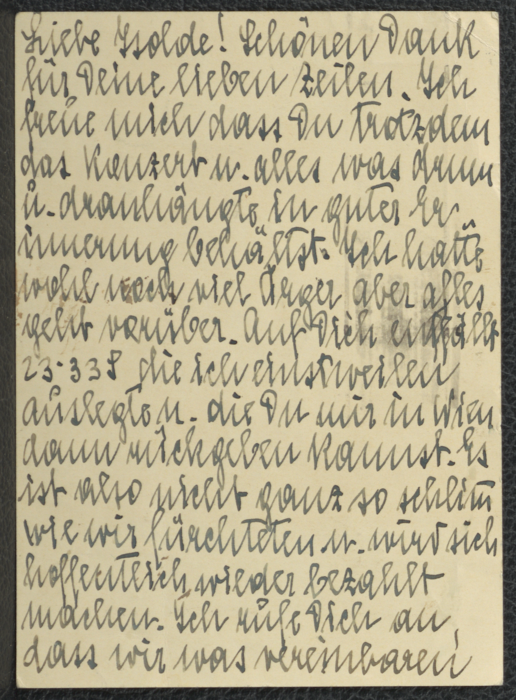 Liebe Isolde! Schönen Dank
für Deine lieben Zeilen. Ich
freue mich dass Du trotzdem
das Konzert u. alles was drum
u. dranhängte in guter Er-
innerung behältst. Ich hatte
wohl noch viel Ärger aber alles
geht vorüber. Auf Dich entfällt
23.33 S die ich einstweilen
auslegte u. die Du mir in Wien
dann rückgeben kannst. Es
ist also nicht ganz so schlim̅
wie wir fürchteten u. wird sich
hoffentlich wieder bezahlt
machen. Ich rufe Dich an,
dass wir was vereinbaren